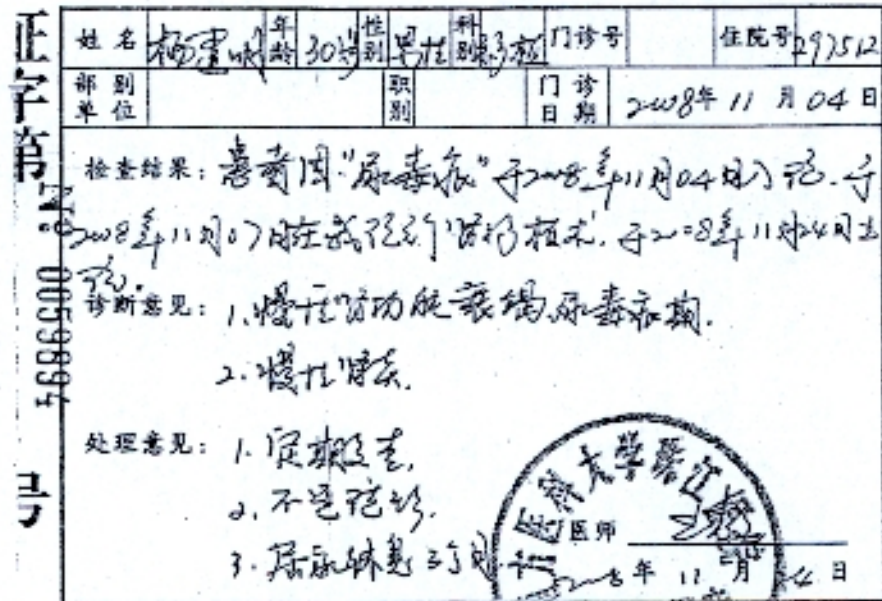 证字第 号
0059894
姓名 杨建 年龄 30岁 性别 男性 科别 移植 门诊号 住院号 297512
部别单位 职别 门诊日期 2008年11月04日
检查结果：患者因“尿毒症”于2008年11月04日入院.于
2008年11月07日在我院行肾移植术.于2008年11月24日出
院.
诊断意见：1.慢性肾功能衰竭尿毒症期.
2.慢性肾炎.
处理意见：1.定期复查.
2.不适随诊.
3.休息三个月.
医科大学珠江
医师
2008年11月24日